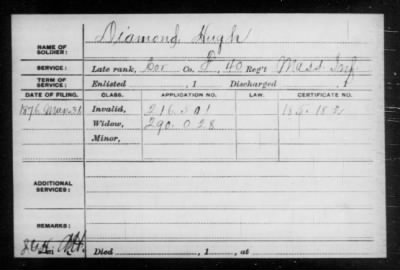 NAME OF SOLDIER: Diamond, Hugh
SERVICE: Late rank, Cor Co. D, 40 Reg't Mass. Inf
TERM OF SERVICE: Enlisted , 1 Discharged , 1
DATE OF FILING. CLASS. APPLICATION NO. LAW. CERTIFICATE NO.
1876 Mar. 31 Invalid, 216.301
Widow, 290.028
Minor,
ADDITIONAL SERVICES:
REMARKS:
Died , 1 , at